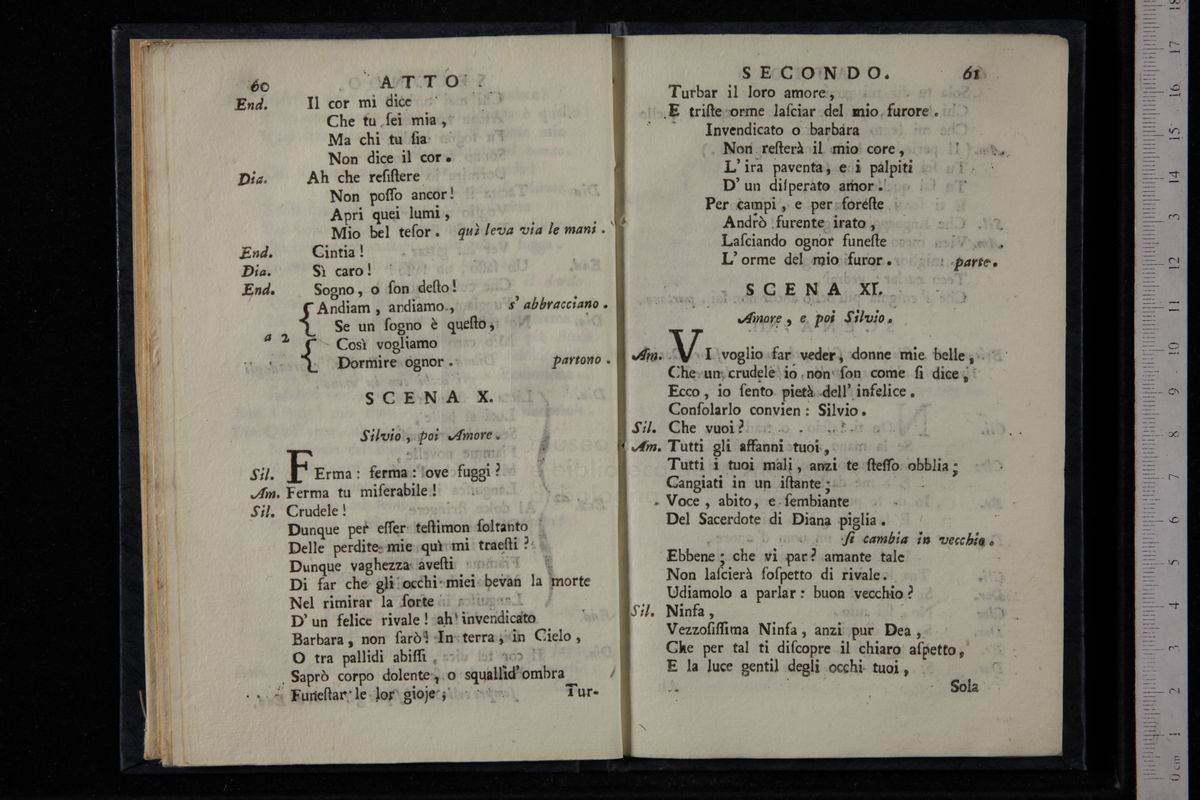 60 ATTO
End. Il cor mi dice
Che tu ſei mia,
Ma chi tu ſia
Non dice il cor.
Dia. Ah che reſiſtere
Non poſſo ancor!
Apri quei lumi,
Mio bel teſor. quì leva via le mani.
End. Cintia!
Dia. Sì caro!
End. Sogno, o ſon deſto!
Andiam, andiamo, s' abbracciano.
Se un ſogno è queſto,
a 2
Così vogliamo
Dormire ognor. partono.
SCENA X.
Silvio, poi Amore.
Sil. FErma: ferma: ove fuggi?
Am. Ferma tu miſerabile!
Sil. Crudele!
Dunque per eſſer teſtimon ſoltanto
Delle perdite mie quì mi traeſti?
Dunque vaghezza aveſti
Di far che gli occhi miei bevan la morte
Nel rimirar la ſorte
D' un felice rivale! ah' invendicato
Barbara, non ſarò! In terra, in Cielo,
O tra pallidi abiſſi
Saprò corpo dolente, o squallid' ombra
Funeſtar le lor gioje;
Tur-
SECONDO. 61
Turbar il loro amore,
E triſte orme laſciar del mio furore.
Invendicato o barbara
Non reſterà il mio core,
L' ira paventa, e i palpiti
D' un diſperato amor.
Per campi, e per foreſte
Andrò furente irato,
Laſciando ognor funeſte
L' orme del mio furor. parte.
SCENA XI.
Amore, e poi Silvio.
Am. VI voglio far veder, donne mie belle,
Che un crudele io non ſon come ſi dice,
Ecco, io ſento pietà dell' infelice.
Conſolarlo convien: Silvio.
Sil. Che vuoi?
Am. Tutti gli affanni tuoi,
Tutti i tuoi mali, anzi te ſteſſo obblia;
Cangiati in un iſtante;
Voce, abito, e ſembiante
Del Sacerdote di Diana piglia.
ſi cambia in vecchio.
Ebbene; che vi par? amante tale
Non laſcierà ſoſpetto di rivale.
Udiamolo a parlar: buon vecchio?
Sil. Ninfa,
Vezzoſiſſima Ninfa, anzi pur Dea,
Che per tal ti diſcopre il chiaro aſpetto,
E la luce gentil degli occhi tuoi,
Sola
0 cm 1 2 3 4 5 6 7 8 9 10 11 12 13 14 15 16 17 18